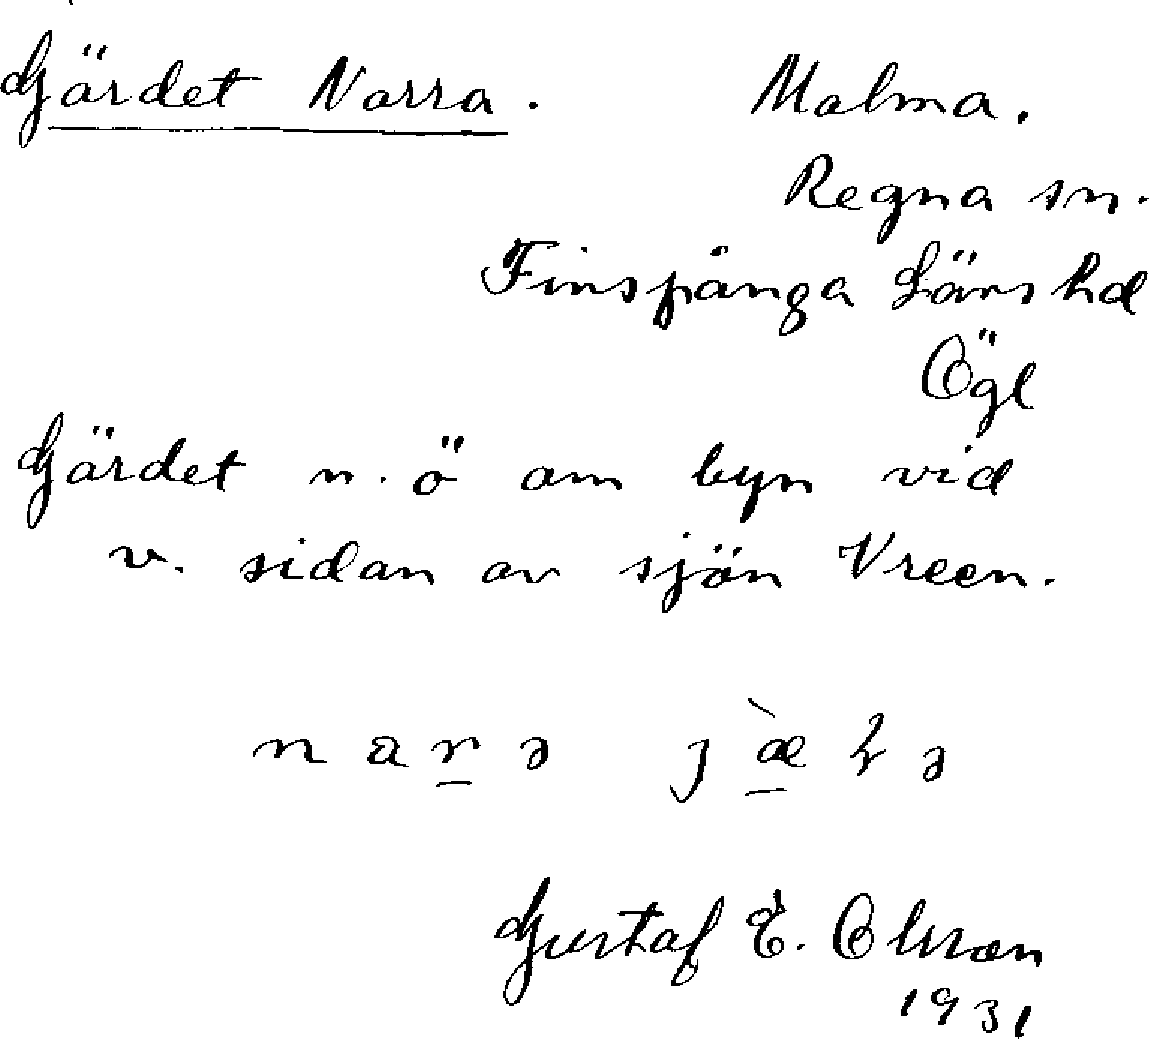 Gärdet Norra. Malma.
Regna sn.
Finspånga Läns hd
Ögl
Gärdet n. ö om byn vid
v. sidan av sjön Vreen.
Gustaf E. Olsson
1931